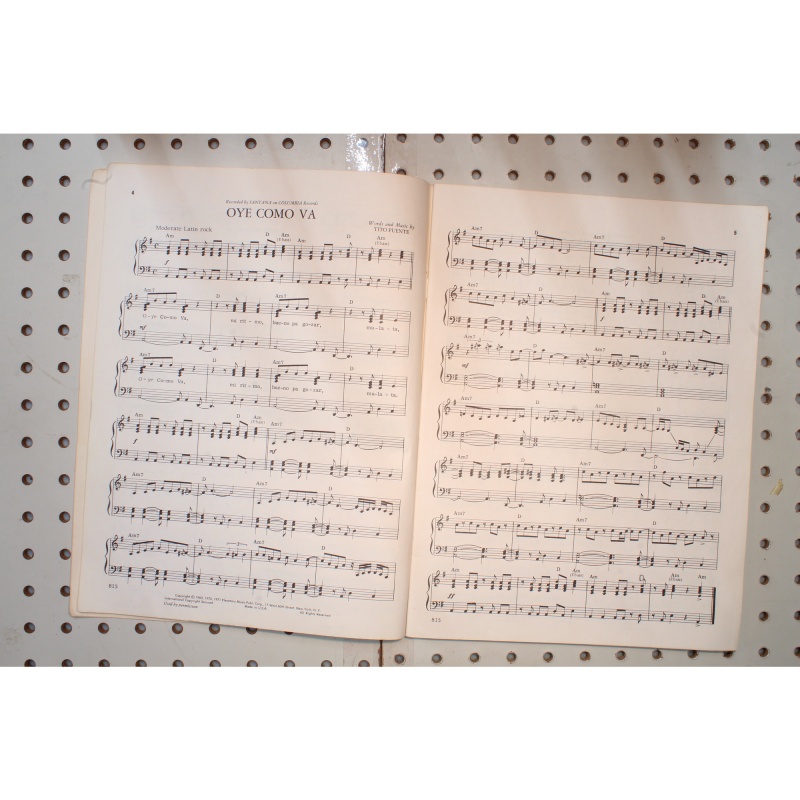 4
Recorded by SANTANA on COLUMBIA Records
OYE COMO VA
Words and Music By
TITO PUENTE
Moderate Latin rock
Am D Am (Chant) Am D Am (Chant)
f
Am7 D Am7 D
O-ye Co-mo Va, mi rit-mo, bue-no pa go-zar, mu-la-ta,
mf
Am7 D Am7 D
O-ye Co-mo Va, mi rit-mo, bue-no pa go-zar, mu-la-ta.
Am D Am (Chant) Am7 D
f mf
Am7 D Am7 D
Am7 D Am7 D
3
815
International Copyright Secured
Made in U.S.A.
All Rights Reserved
5
Am7 D Am7 D
Am7 D Am D Am (Chant)
f
Am7 D Am7 D
mf
Am7 D Am7 D
Am7 D Am7 D
Am7 D Am7 D
Am D Am (Chant) Am D Am (Chant) Am
ff
815